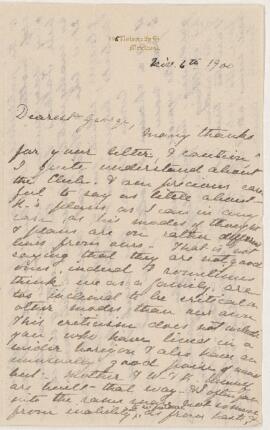 Nov. 6th 1900
Dearest George,
Many thanks
for your letter, & caution
I quite understand about
the Club. I am precious care
ful to say as little about
K.'s plans as I can in any
case as his modes of thought
& plans are on rather different
lines from ours. That is not
saying that they are not good
ones, indeed I sometimes
think we as a family, are
too inclined to be critical on
other modes than our own
This criticism does not include
you, who have lived in a
wider horizon & also have an
immensely good power of
but Mother &
are built that way & often
with the same not so much
from inability as from